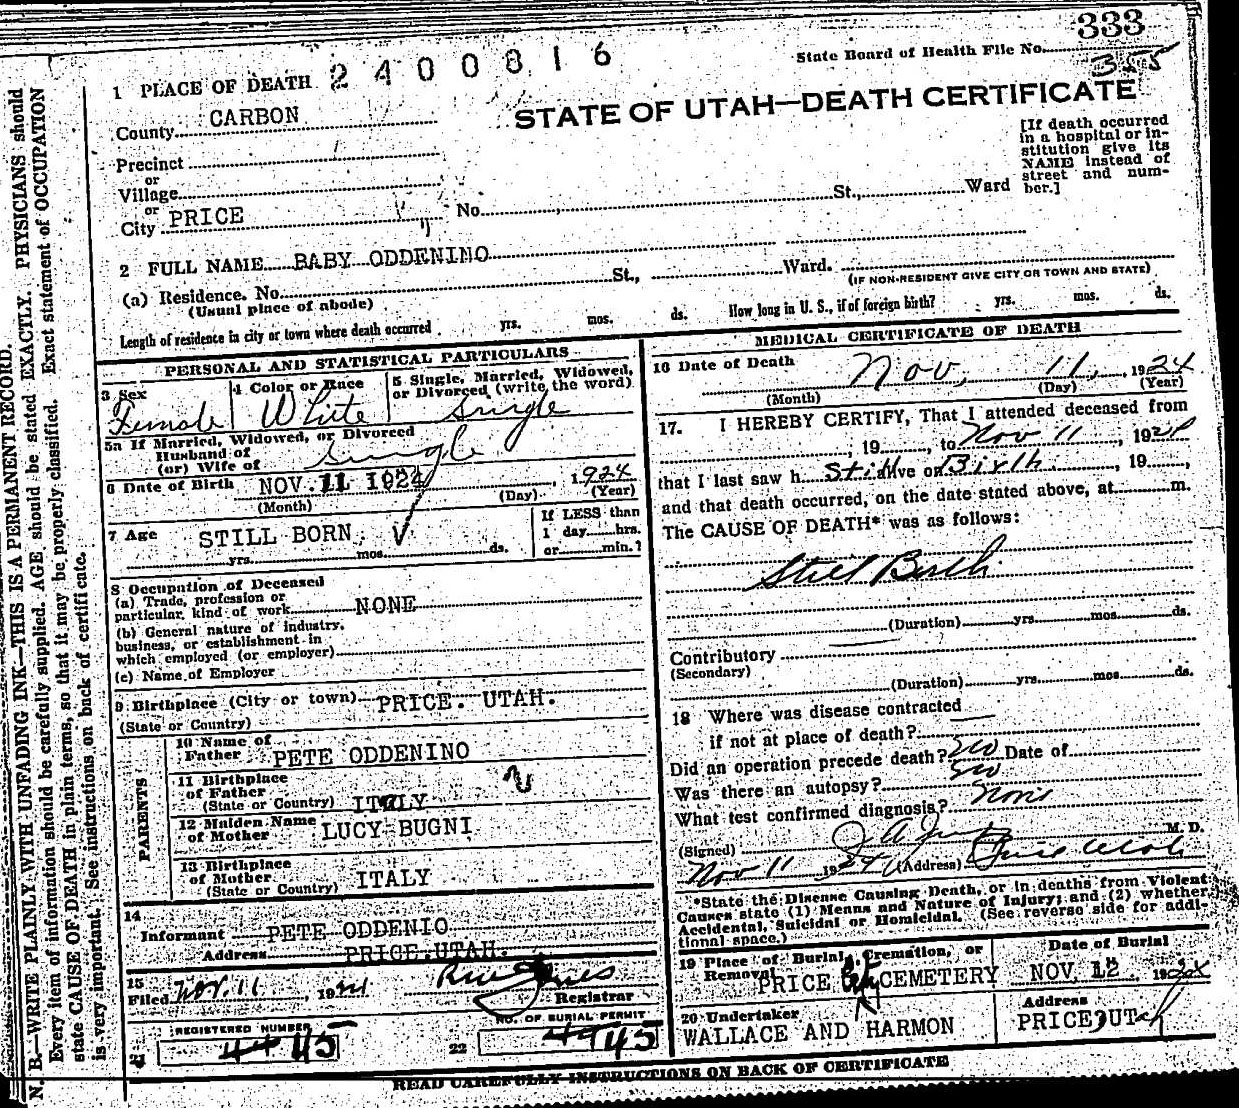 333
State Board of Health File No.
355
2400816
1 PLACE OF DEATH
STATE OF UTAH—DEATH CERTIFICATE
County CARBON
[If death occurred in a hospital or institution give its NAME instead of street and number.]
Precinct
or
Village
or
City PRICE No. St., Ward
2 FULL NAME BABY ODDENINO
(a) Residence. No. St., Ward.
(Usual place of abode) (IF NON-RESIDENT GIVE CITY OR TOWN AND STATE)
Length of residence in city or town where death occurred yrs. mos. ds. How long in U. S., if of foreign birth? yrs. mos. ds.
PERSONAL AND STATISTICAL PARTICULARS
3 Sex 4 Color or Race 5 Single, Married, Widowed, or Divorced, (write the word)
Female White Single
5a If Married, Widowed, or Divorced
Husband of
(or) Wife of Single
6 Date of Birth NOV. 11 1924 , 1924
(Month) (Day) (Year)
7 Age STILL BORN
yrs. mos. ds.
If LESS than
1 day hrs.
or min.?
8 Occupation of Deceased
(a) Trade, profession or
particular, kind of work NONE
(b) General nature of industry,
business, or establishment in
which employed (or employer)
(c) Name of Employer
9 Birthplace (City or town) PRICE. UTAH.
(State or Country)
PARENTS
10 Name of
Father PETE ODDENINO
11 Birthplace
of Father
(State or Country) ITALY
12 Maiden Name
of Mother LUCY BUGNI
13 Birthplace
of Mother
(State or Country) ITALY
14
Informant PETE ODDENIO
Address PRICE.UTAH.
15
Filed Nov. 11, 1924
Registrar
REGISTERED NUMBER
21 44 45
NO. OF BURIAL PERMIT
22 44 45
MEDICAL CERTIFICATE OF DEATH
16 Date of Death Nov, 11, 1924
(Month) (Day) (Year)
17. I HEREBY CERTIFY, That I attended deceased from
, 19 , to Nov 11 , 1924
that I last saw h Still alive on Birth , 19 ,
and that death occurred, on the date stated above, at m.
The CAUSE OF DEATH* was as follows:
Still Birth
(Duration) yrs. mos. ds.
Contributory
(Secondary)
(Duration) yrs. mos. ds.
18 Where was disease contracted
if not at place of death?
Did an operation precede death? no Date of
Was there an autopsy? no
What test confirmed diagnosis? none
(Signed) M. D.
Nov 11 1924 (Address) Price Utah
*State the Disease Causing Death, or in deaths from Violent
Causes state (1) Means and Nature of Injury; and (2) whether
Accidental, Suicidal or Homicidal. (See reverse side for addi-
tional space.)
19 Place of Burial, Cremation, or
Removal PRICE City CEMETERY
Date of Burial
NOV. 12 , 1924
20 Undertaker
WALLACE AND HARMON
Address
PRICE, UTah
READ CAREFULLY INSTRUCTIONS ON BACK OF CERTIFICATE
N. B.—WRITE PLAINLY WITH UNFADING INK—THIS IS A PERMANENT RECORD.
Every item of information should be carefully supplied. AGE should be stated EXACTLY. PHYSICIANS should
state CAUSE OF DEATH in plain terms, so that it may be properly classified. Exact statement of OCCUPATION
is very important. See instructions on back of certificate.